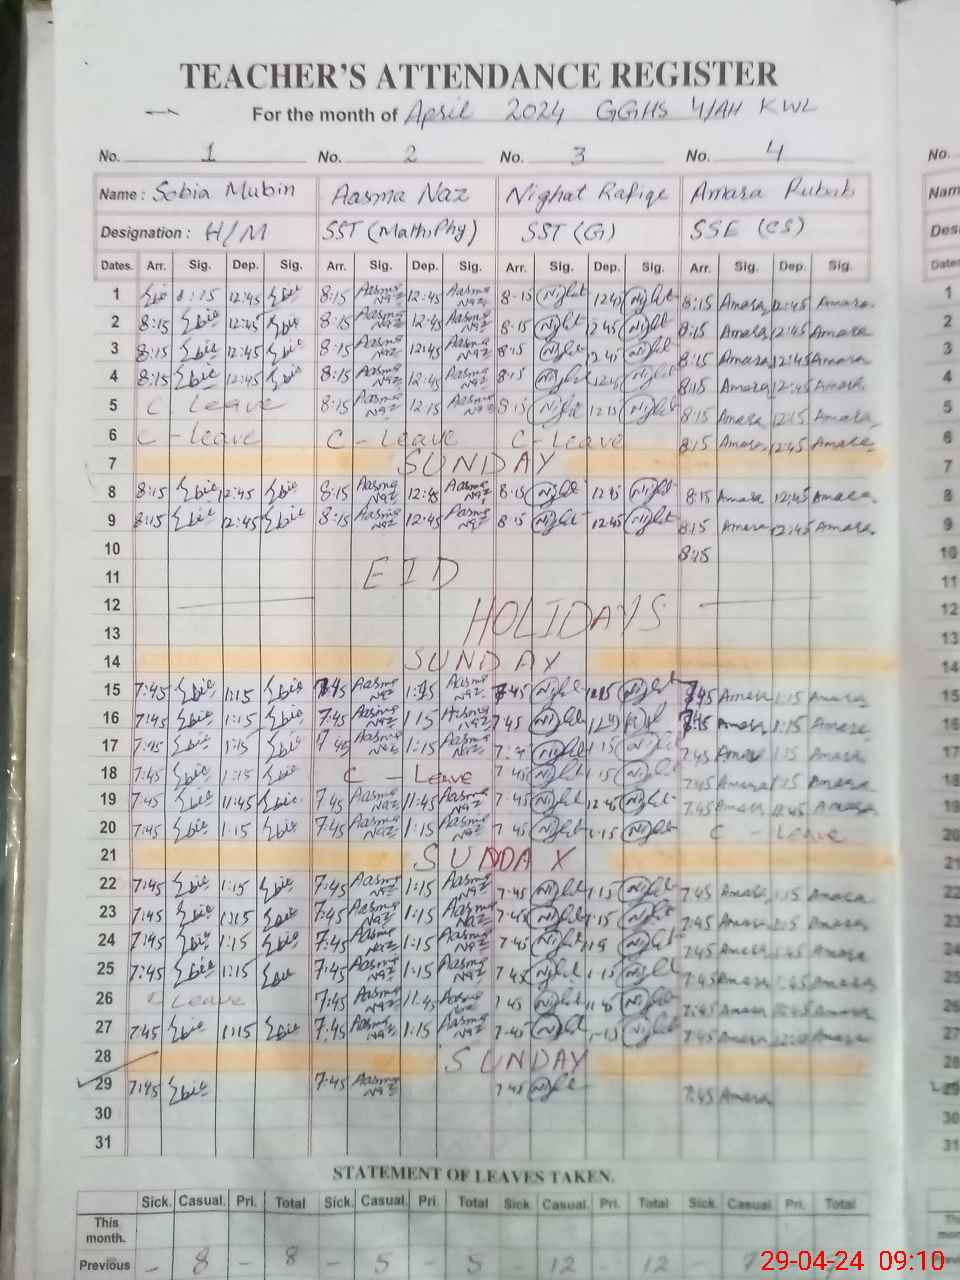 TEACHER'S ATTENDANCE REGISTER
For the month of April 2024 GGHS 4/AH KWL
No. 1 No. 2 No. 3 No. 4 No.
Name : Sobia Mubin Aasma Naz Nighat Rafiqe Amara Rubab
Designation : H/M SST (Math, Phy) SST (G) SSE (CS)
Dates. Arr. Sig. Dep. Sig. Arr. Sig. Dep. Sig. Arr. Sig. Dep. Sig. Arr. Sig. Dep. Sig.
1 8:15 12:45 8:15 Aasma Naz 12:45 Aasma Naz 8:15 Night 12:45 Night 8:15 Amara 12:45 Amara 1
2 8:15 12:45 8:15 Aasma Naz 12:45 Aasma Naz 8:15 Night 12:45 Night 8:15 Amara 12:45 Amara 2
3 8:15 12:45 8:15 Aasma Naz 12:45 Aasma Naz 8:15 Night 12:45 Night 8:15 Amara 12:45 Amara 3
4 8:15 12:45 8:15 Aasma Naz 12:45 Aasma Naz 8:15 Night Night 8:15 Amara 12:45 Amara 4
5 C Leave 8:15 Aasma Naz 12:15 Aasma Naz 8:15 Night 12:15 Night 8:15 Amara 12:15 Amara 5
6 C - Leave C - Leave C - Leave 8:15 Amara 12:45 Amara 6
7 SUNDAY 7
8 8:15 12:45 8:15 Aasma Naz 12:45 Aasma Naz 8:15 Night 12:45 Night 8:15 Amara 12:45 Amara 8
9 8:15 12:45 8:15 Aasma Naz 12:45 Aasma Naz 8:15 Night 12:45 Night 8:15 Amara 12:45 Amara 9
10 8:15 10
11 EID 11
12 HOLIDAYS 12
13 13
14 SUNDAY 14
15 7:45 1:15 7:45 Aasma Naz 1:15 Aasma Naz 7:45 Night Night 7:45 Amara 1:15 Amara 15
16 7:45 1:15 7:45 Aasma Naz 1:15 Aasma Naz 7:45 Night 7:45 Amara 1:15 Amara 16
17 7:45 1:15 7:45 Aasma Naz 1:15 Aasma Naz Night 1:15 Night 7:45 Amara 1:15 Amara 17
18 7:45 1:15 C - Leave 7:45 Night 1:15 Night 7:45 Amara 1:15 Amara 18
19 7:45 11:45 7:45 Aasma Naz 11:45 Aasma Naz 7:45 Night Night 7:45 Amara Amara 19
20 7:45 1:15 7:45 Aasma Naz 1:15 Aasma Naz 7:45 Night 1:15 Night C - Leave 20
21 SUNDAY 21
22 7:45 1:15 7:45 Aasma Naz 1:15 Aasma Naz 7:45 Night 1:15 Night 7:45 Amara 1:15 Amara 22
23 7:45 1:15 7:45 Aasma Naz 1:15 Aasma Naz 7:45 Night 1:15 Night 7:45 Amara 1:15 Amara 23
24 7:45 1:15 7:45 Aasma Naz 1:15 Aasma Naz 7:45 Night Night 7:45 Amara Amara 24
25 7:45 1:15 7:45 Aasma Naz 1:15 Aasma Naz 7:45 Night 1:15 Night 7:45 Amara Amara 25
26 C Leave 7:45 Aasma Naz 11:45 Aasma Naz 7:45 Night Night 7:45 Amara Amara 26
27 7:45 1:15 7:45 Aasma Naz 1:15 Aasma Naz 7:45 Night 1:15 Night 7:45 Amara Amara 27
28 SUNDAY 28
29 7:45 7:45 Aasma Naz 7:45 Night 7:45 Amara 29
30 30
31 31
STATEMENT OF LEAVES TAKEN.
Sick. Casual. Pri. Total Sick. Casual. Pri. Total Sick. Casual. Pri. Total Sick. Casual. Pri. Total
This month.
Previous - 8 - 8 - 5 - 5 12 12
29-04-24 09:10